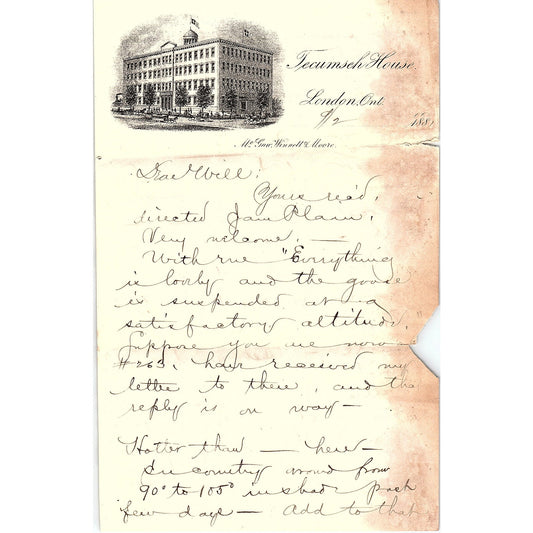 Tecumseh House.
London, Ont.
9/2 188
Mc Gaw, Winnett & Moore.
Dear Will:
Yours rec'd,
directed Jam Plain.
Very welcome. —
With me "Everything
is lovely and the goose
is suspended at a
satisfactory altitude."
Suppose you are now
#263, have received my
letter to there, and the
reply is on way —
Hotter than — here —
In country around from
90° to 105° in shade past
few days — Add to that